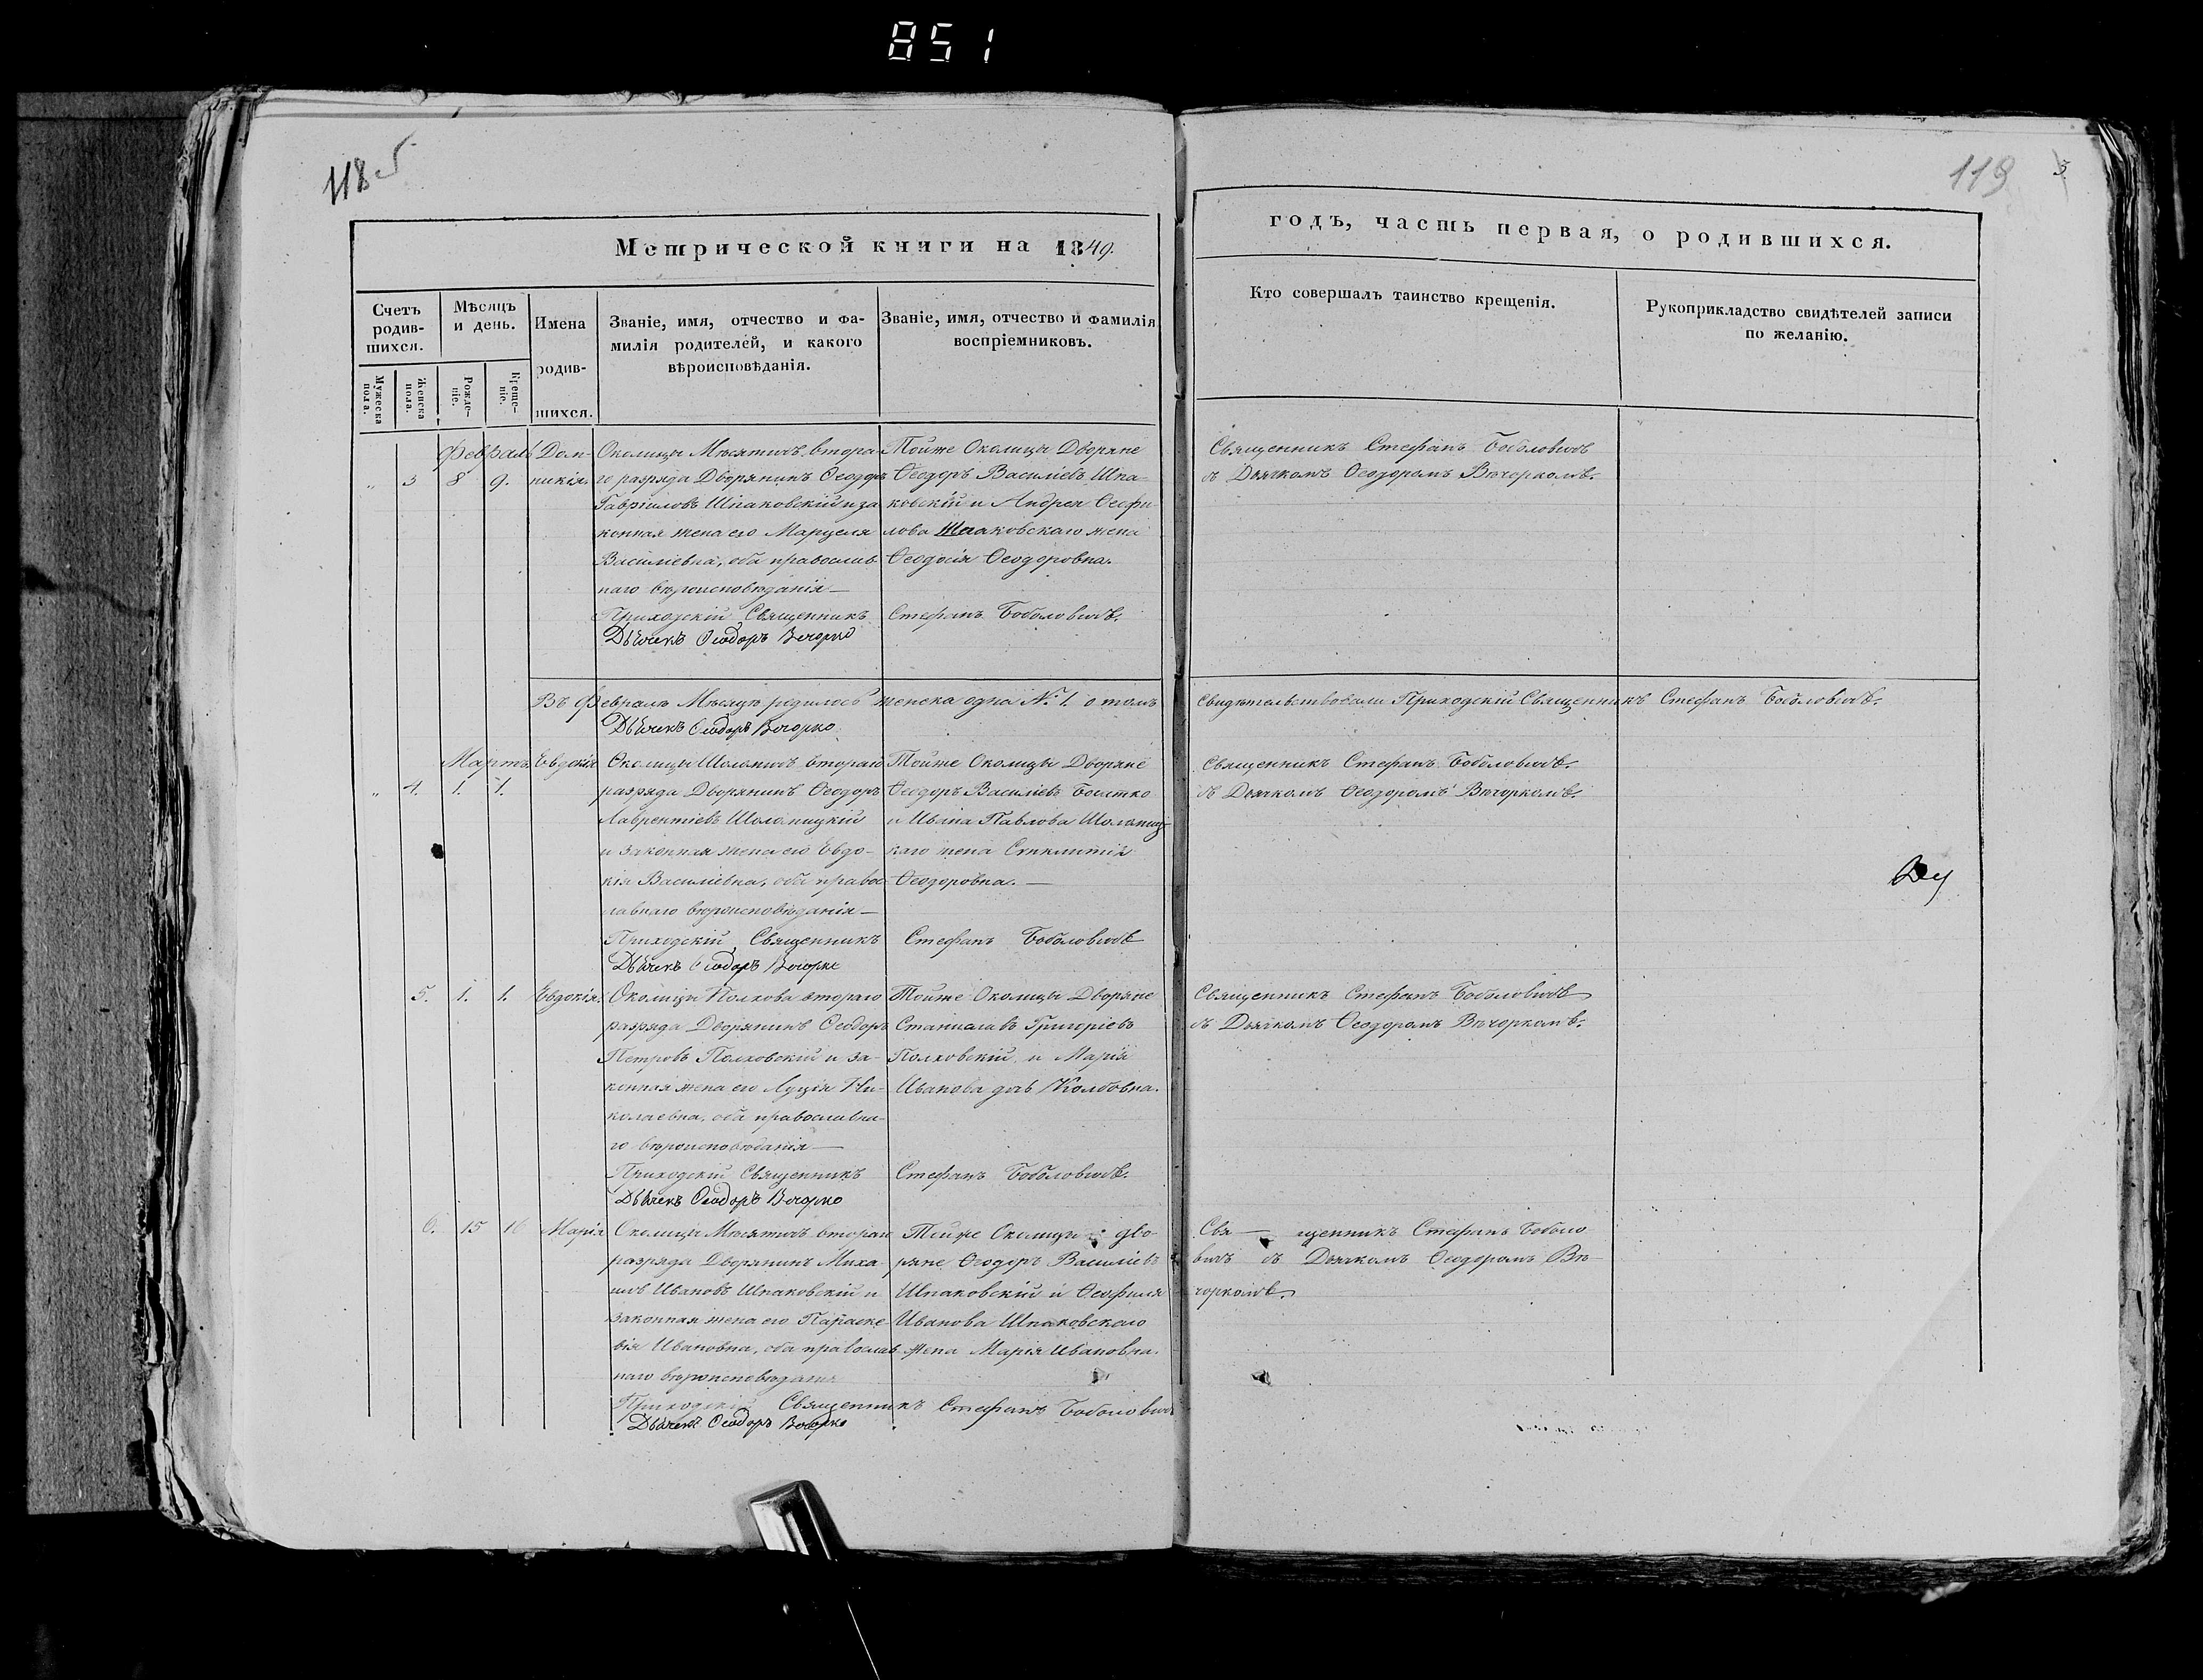 851
118 5
119
Метрической книги на 1849.
годъ, часть первая, о родившихся.
Счетъ родив-шихся.
Мѣсяцъ и день.
Имена родив-шихся.
Званіе, имя, отчество и фа-
милія родителей, и какого
вѣроисповѣданія.
Званіе, имя, отчество и фамилія
воспріемниковъ.
Кто совершалъ таинство крещенія.
Рукоприкладство свидѣтелей записи
по желанію.
Мужеска пола.
Женска пола.
Рожде-ніе.
Креще-ніе.
Февраль
„ 3 8 9.
Дом-
никія.
Околицы втора-
го разряда Дворянинъ Ѳеодоръ
Гавріиловъ Шпаковскій и за
конная жена его Марцеля
Василіевна, оба православ
наго вѣроисповѣданія—
Приходскій Священникъ
Дьячекъ Ѳеодоръ Вечорко
Тойже Околицы Дворяне
Ѳеодоръ Василіевъ Шпа-
ковскій и Андрея Ѳеофи
лова Шпаковскаго жена
Ѳеодосія Ѳеодоровна.
Стефанъ
Священникъ Стефанъ
съ Дьячкомъ Ѳеодоромъ Вечоркомъ.
Въ Февралѣ Мѣсяцѣ родилось женска одна № 1. о томъ
свидѣтельствовали Приходскій Священникъ Стефанъ
Дьячекъ Ѳеодоръ Вечорко
Мартъ
„ 4. 1. 1.
Евдокія
Околицы втораго
разряда Дворянинъ Ѳеодоръ
Лаврентіевъ Шоломицкій
и законная жена его Евдо-
кія Василіевна, оба правос
лавнаго вѣроисповѣданія—
Приходскій Священникъ
Дьячекъ Ѳеодоръ Вечорко
Тойже Околицы Дворяне
Ѳеодоръ Василіевъ
и Ивана Павлова Шоломиц
каго жена Синклитія
Ѳеодоровна.—
Стефанъ
Священникъ Стефанъ
съ Дьячкомъ Ѳеодоромъ Вечоркомъ.
5. 1. 1.
Евдокія.
Околицы втораго
разряда Дворянинъ Ѳеодоръ
Петровъ Полховскій и за-
конная жена его Луція Ни-
колаевна, оба православна-
го вѣроисповѣданія—
Приходскій Священникъ
Дьячекъ Ѳеодоръ Вечорко
Тойже Околицы Дворяне
Станиславъ Григоріевъ
Полховскій и Марія
Иванова дочь
Стефанъ
Священникъ Стефанъ
съ Дьячкомъ Ѳеодоромъ Вечоркомъ.
6. 15 16
Марія
Околицы втораго
разряда Дворянинъ Миха-
илъ Ивановъ Шпаковскій и
законная жена его Параске
вія Ивановна, оба православ
наго вѣроисповѣданія
Приходскій Священникъ Стефанъ
Дьячекъ Ѳеодоръ Вечорко
Тойже Околицы дво-
ряне Ѳеодоръ Василіевъ
Шпаковскій и Ѳеофила
Иванова Шпаковскаго
жена Марія Ивановна.
Свя— щенникъ Стефанъ
съ Дьячкомъ Ѳеодоромъ Ве-
чоркомъ.